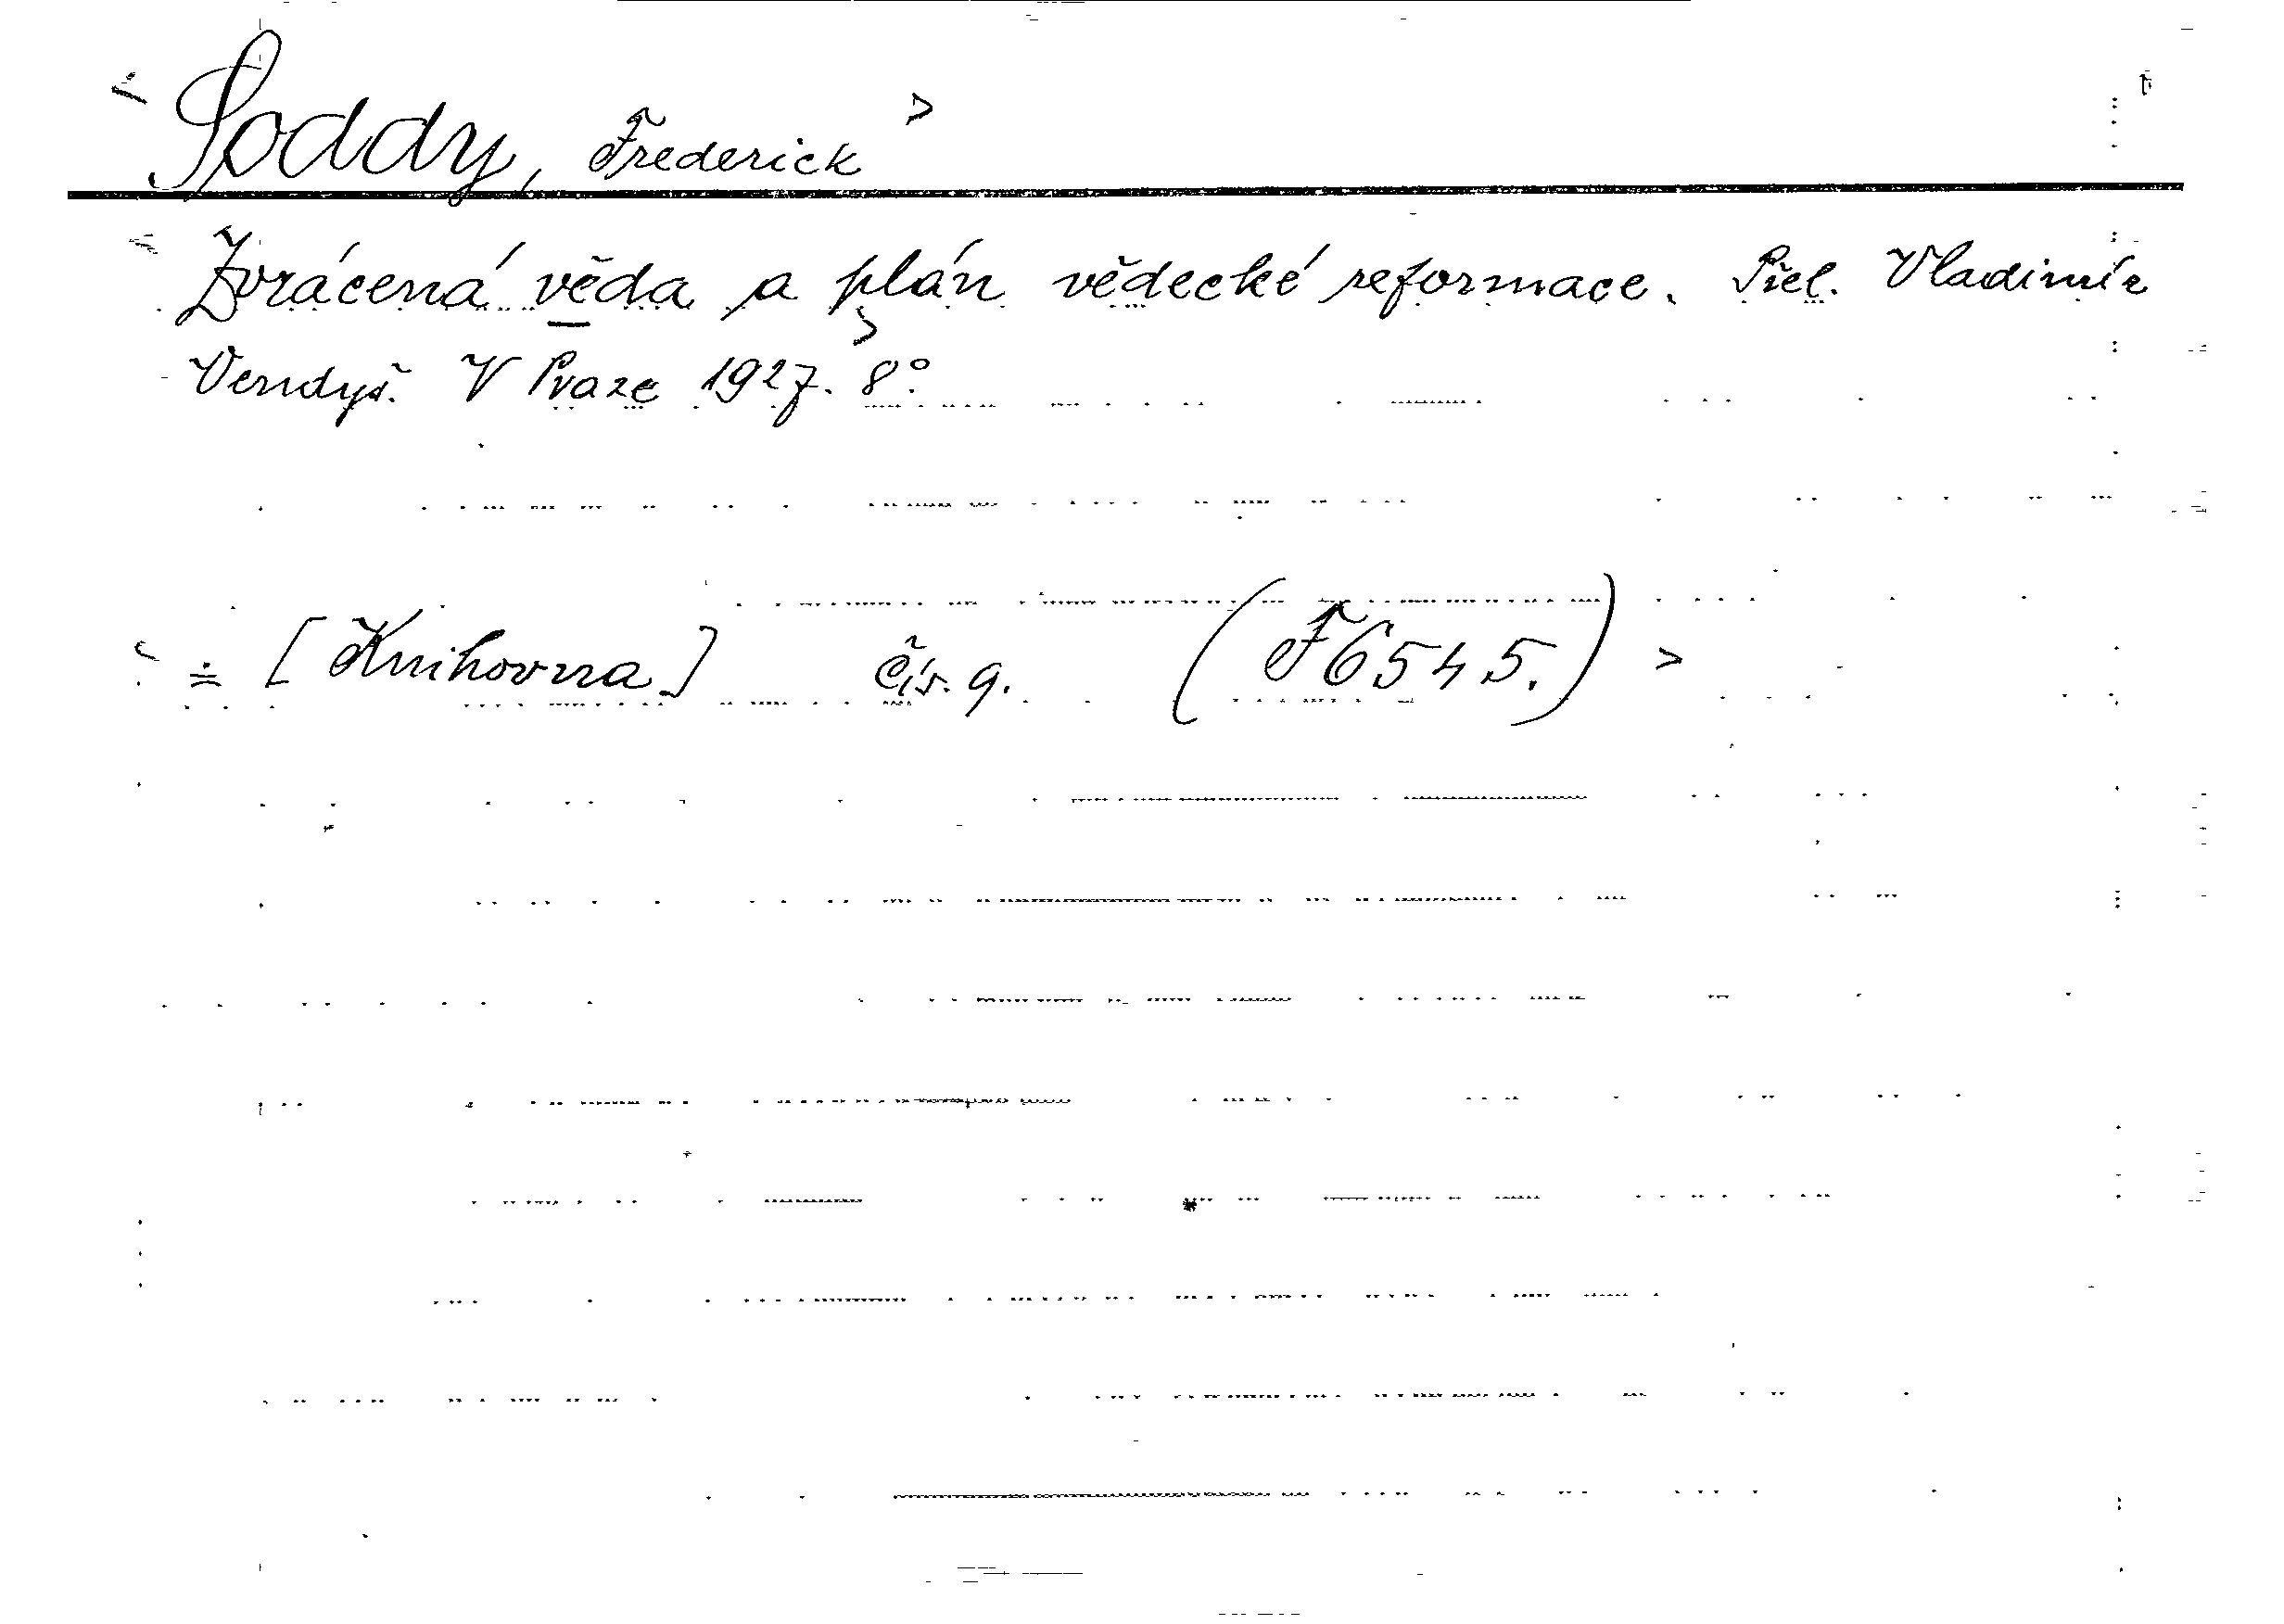 < Soddy, Frederick >
< Zvrácená věda a plán vědecké reformace. Přel. Vladimír
Vendyš. V Praze 1927. 8°. >
< = [Knihovna] Čís. 9. (F6545.) >